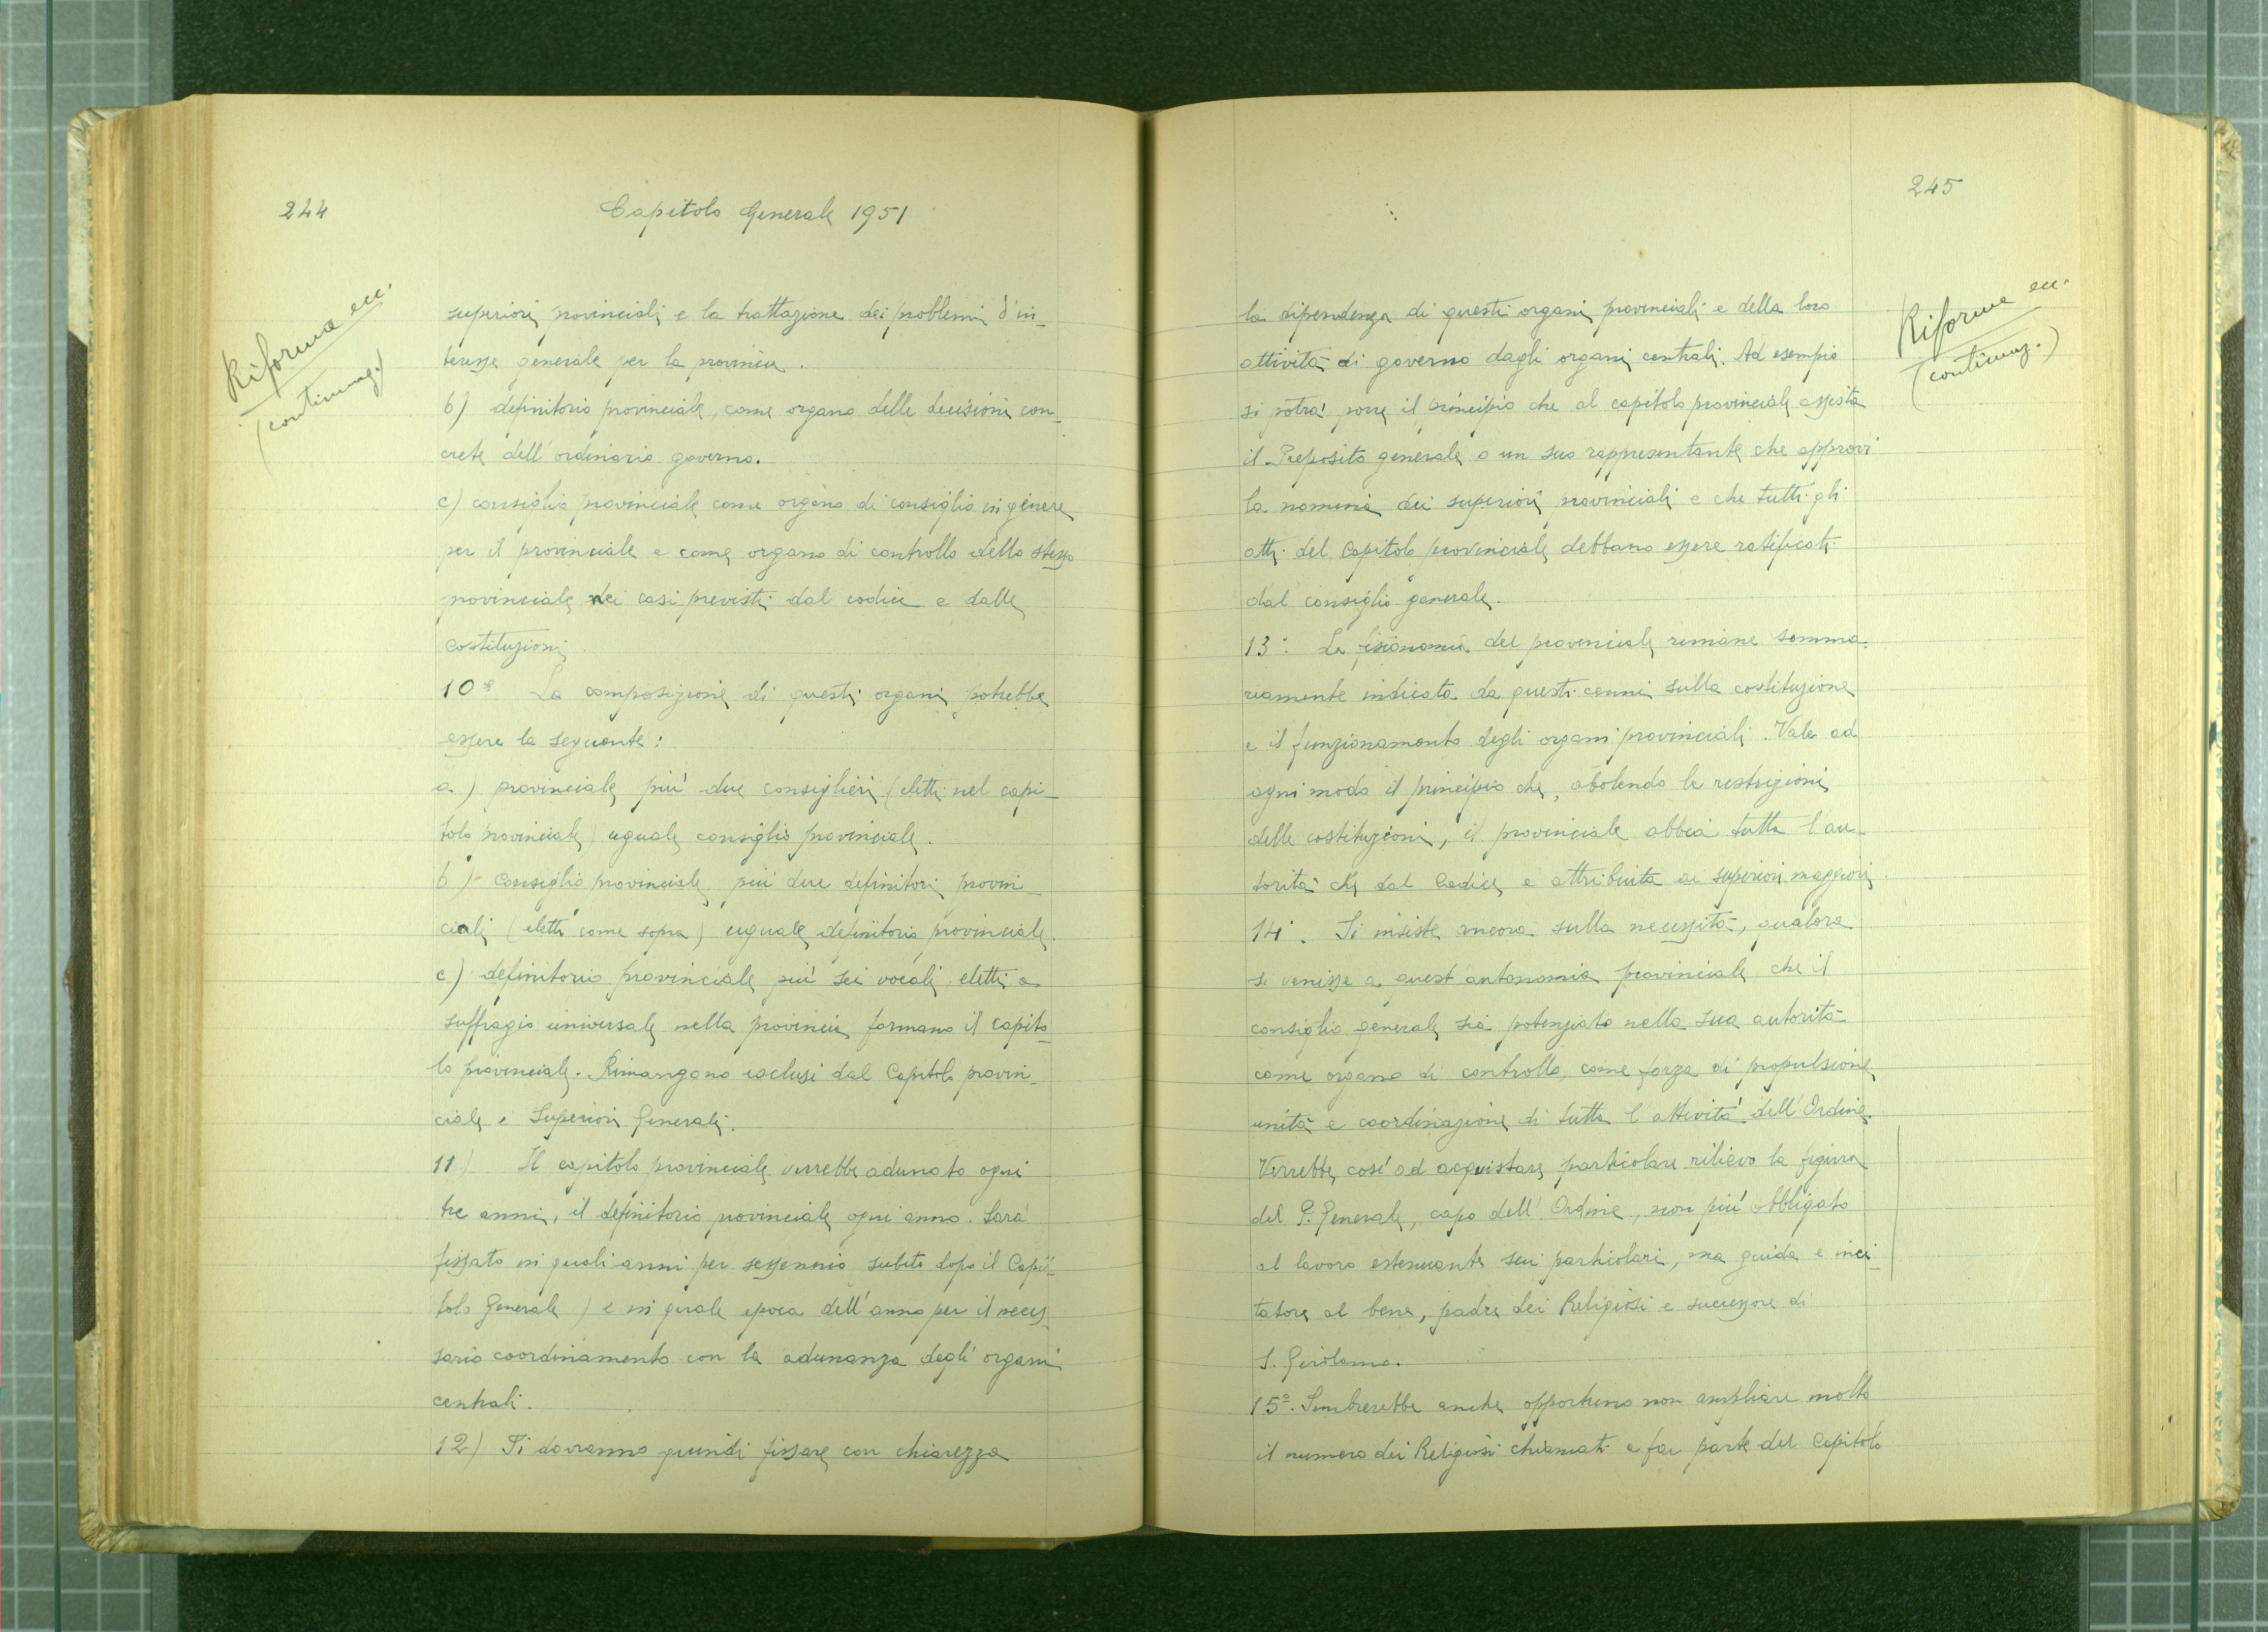 244
Capitolo Generale 1951
Riforma ecc.
(continuaz.)
superiori provinciali e la trattazione dei problemi d'in-
teresse generale per la provincia.
b) definitorio provinciale, come organo delle decisioni con-
crete dell'ordinario governo.
c) consiglio provinciale come organo di consiglio in genere
per il provinciale e come organo di controllo dello stesso
provinciale nei casi previsti dal codice e dalle
costituzioni
10° La composizione di questi organi potrebbe
essere la seguente:
a) provinciale più due consiglieri (eletti nel capi-
tolo provinciale) uguale consiglio provinciale.
b) Consiglio provinciale più due definitori provin-
ciali (eletti come sopra) uguale definitorio provinciale.
c) definitorio provinciale più sei vocali eletti a
suffragio universale nella provincia formano il capito-
lo provinciale. Rimangono esclusi dal Capitolo provin-
ciale i Superiori Generali.
11) Il capitolo provinciale verrebbe adunato ogni
tre anni, il definitorio provinciale ogni anno. Sarà
fissato in quali anni per sessennio subito dopo il Capi-
tolo Generale) e in quale epoca dell'anno per il neces-
sario coordinamento con la adunanza degli organi
centrali.
12) Si dovranno quindi fissare con chiarezza
245
Riforme ecc.
(continuaz.)
la dipendenza di questi organi provinciali e della loro
attività di governo dagli organi centrali. Ad esempio
si potrà porre il principio che al capitolo provinciale assista
il Preposito generale o un suo rappresentante che approvi
la nomina dei superiori provinciali e che tutti gli
atti del Capitolo provinciale debbano essere ratificati
dal consiglio generale.
13° La fisionomia del provinciale rimane somma-
riamente indicata da questi cenni sulla costituzione
e il funzionamento degli organi provinciali. Vale ad
ogni modo il principio che, abolendo le restrizioni
delle costituzioni, il provinciale abbia tutta l'au-
torità che dal Codice è attribuita ai superiori maggiori.
14°. Si insiste ancora sulla necessità, qualora
si venisse a quest'autonomia provinciale che il
consiglio generale sia potenziato nella sua autorità
come organo di controllo, come forza di propulsione
unità e coordinazione di tutta l'attività dell'Ordine.
Verrebbe così ad acquistare particolare rilievo la figura
del P. Generale, capo dell'Ordine, non più obbligato
al lavoro estenuante sui particolari, ma guida e inci-
tatore al bene, padre dei Religiosi e successore di
S. Girolamo.
15°. Sembrerebbe anche opportuno non ampliare molto
il numero dei Religiosi chiamati a far parte del Capitolo